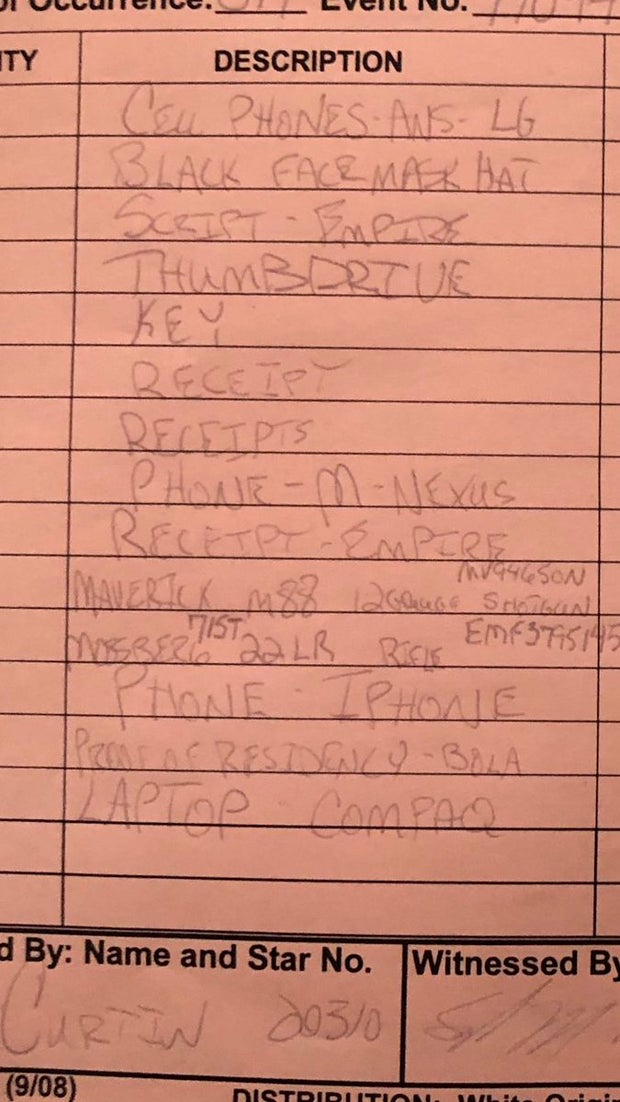 Occurrence: Event No.
ITY DESCRIPTION
CELL PHONES-ANS-LG
BLACK FACEMASK HAT
SCRIPT - EMPIRE
THUMBDRIVE
KEY
RECEIPT
RECEIPTS
PHONE - M-NEXUS
RECEIPT - EMPIRE
MAVERICK M88 12 Gauge SHOTGUN
MOSSBERG 715T 22LR RIFLE
PHONE - IPHONE
PROOF OF RESIDENCY - BOLA
LAPTOP - COMPAQ
d By: Name and Star No. Witnessed By
CURTIN 20310
(9/08) DISTRIBUTION: White Origin